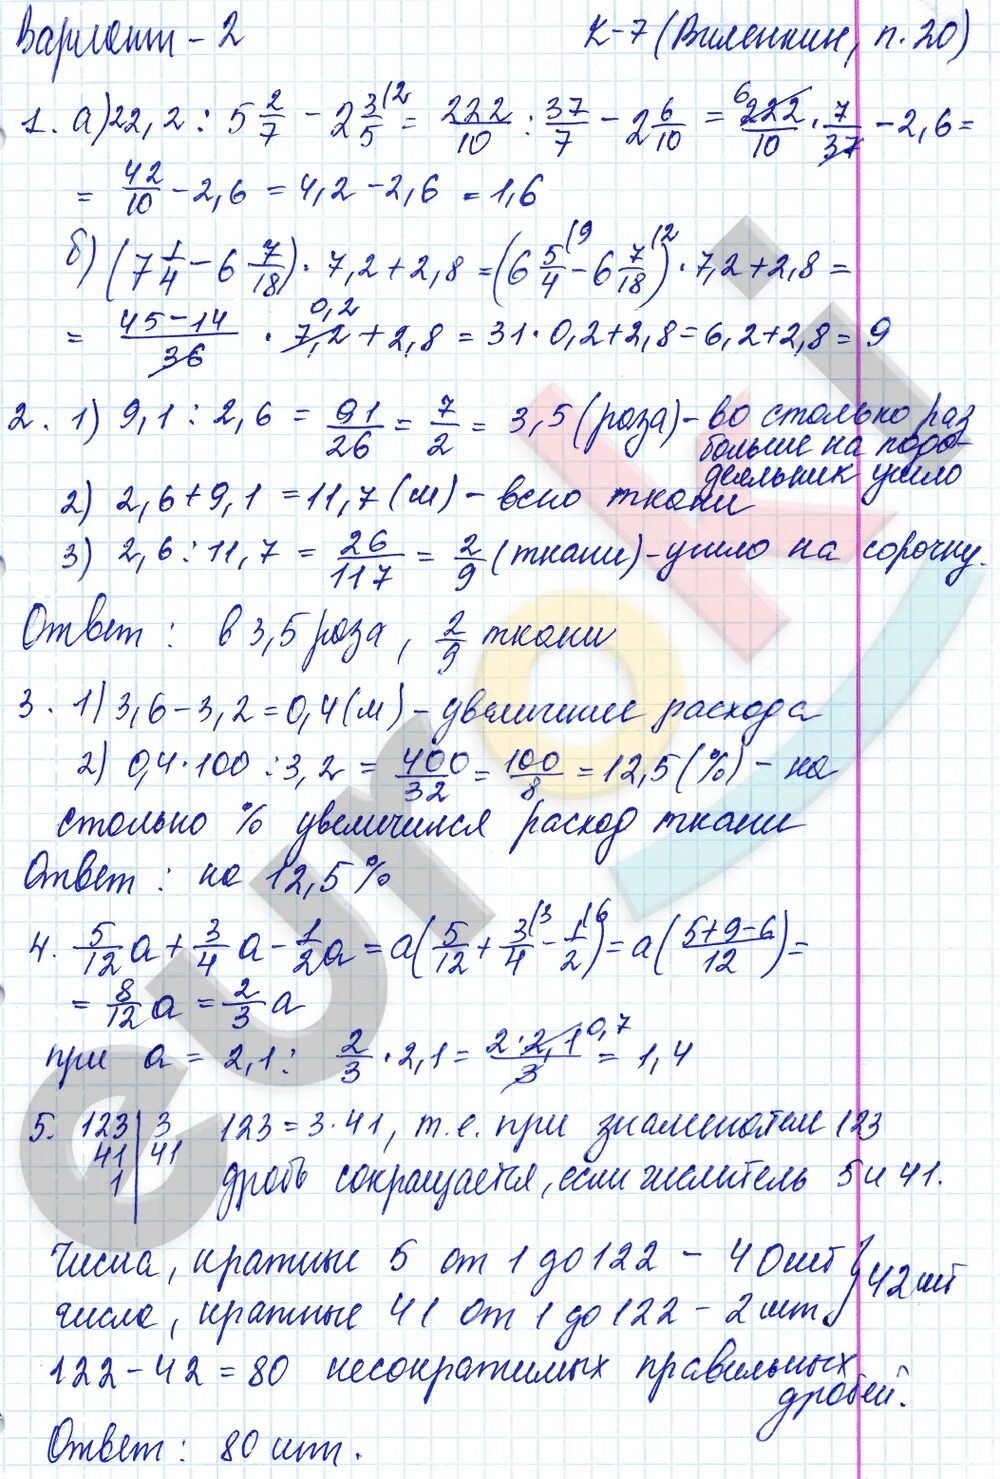 Вариант - 2 К-7 (Виленкин, п. 20)
1. а) 22,2 : 5 2/7 - 2 3/5 (2 = 222/10 : 37/7 - 2 6/10 = 6 222/10 · 7/37 - 2,6 =
= 42/10 - 2,6 = 4,2 - 2,6 = 1,6
б) (7 1/4 - 6 7/18) · 7,2 + 2,8 = (6 5/4 (9 - 6 7/18 (2) · 7,2 + 2,8 =
= 45-14/36 · 7,2 0,2 + 2,8 = 31 · 0,2 + 2,8 = 6,2 + 2,8 = 9
2. 1) 9,1 : 2,6 = 91/26 = 7/2 = 3,5 (раза) - во столько раз
больше на подо-
деяльник ушло
2) 2,6 + 9,1 = 11,7 (м) - всего ткани
3) 2,6 : 11,7 = 26/117 = 2/9 (ткани) - ушло на сорочку.
Ответ: в 3,5 раза, 2/9 ткани
3. 1) 3,6 - 3,2 = 0,4 (м) - увеличение расхода
2) 0,4 · 100 : 3,2 = 400/32 = 100/8 = 12,5 (%) - на
столько % увеличился расход ткани
Ответ: на 12,5 %
4. 5/12 a + 3/4 a - 1/2 a = a (5/12 + 3/4 (3 - 1/2 (6) = a (5+9-6/12) =
= 8/12 a = 2/3 a
при a = 2,1: 2/3 · 2,1 = 2 · 2,1 0,7/3 = 1,4
5. 123 | 3 123 = 3 · 41, т.е. при знаменателе 123
41 | 41 дробь сокращается, если числитель 5 и 41.
1
Числа, кратные 5 от 1 до 122 - 40 шт } 42 шт
числа, кратные 41 от 1 до 122 - 2 шт.
122 - 42 = 80 несократимых правильных
дробей.
Ответ: 80 шт.
euroki